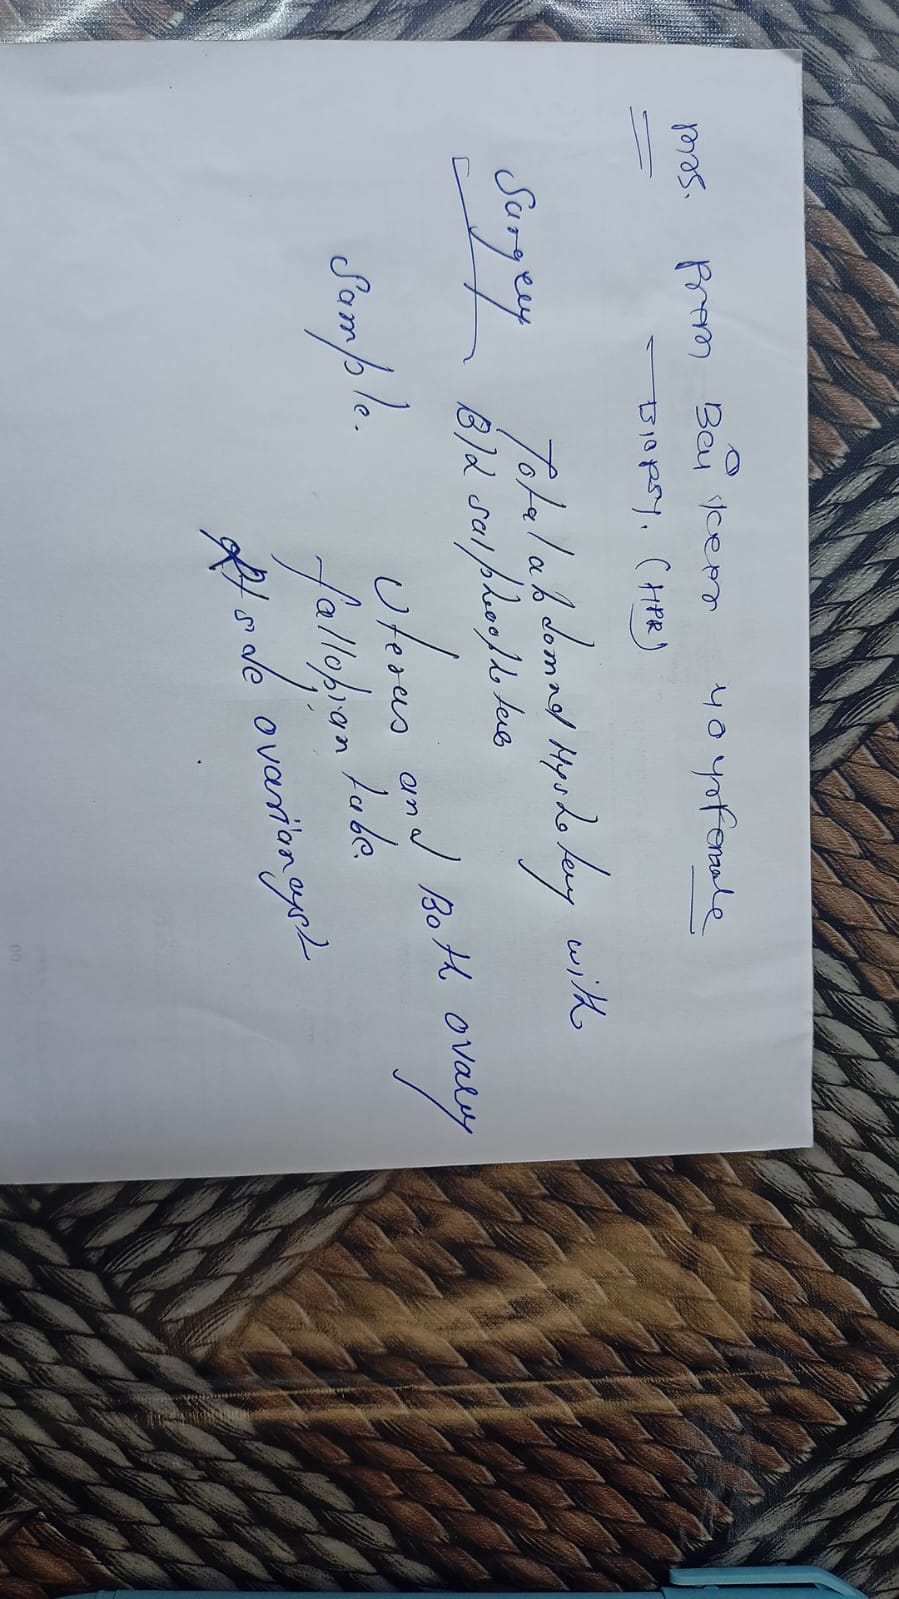 mrs. Prem Bai 40 yr Female
Biopsy. (HPR)
Surgery Total abdomnal Hysterectomy with
B/L salphoophrec
Sample. Uterus and Both ovary
fallopian tube.
Rt side ovarian cyst